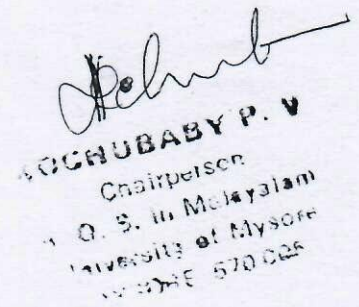 KOCHUBABY P. V
Chairperson
O. S. in Malayalam
University of Mysore
570 005